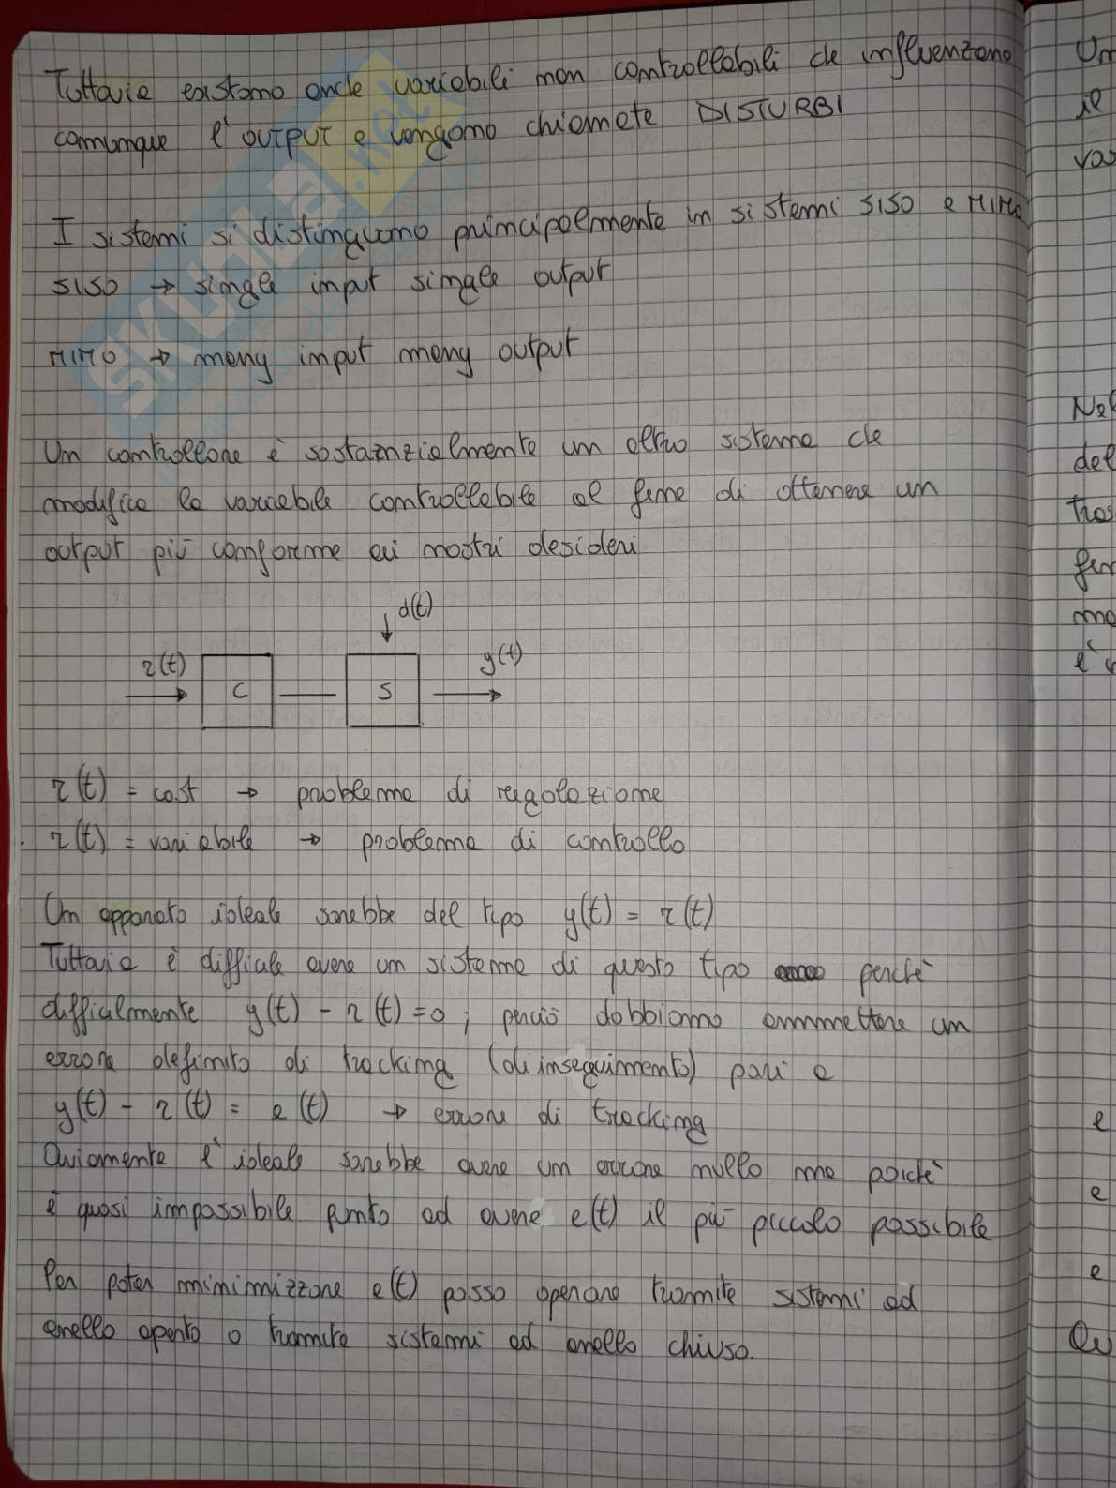 Tuttavia esistono anche variabili non controllabili che influenzano
comunque l'OUTPUT e vengono chiamate DISTURBI
I sistemi si distinguono principalmente in sistemi SISO e MIMO
SISO → single input single output
MIMO → many input many output
Un controllore è sostanzialmente un altro sistema che
modifica la variabile controllabile al fine di ottenere un
output più conforme ai nostri desideri
d(t)
r(t) C S y(t)
r(t) = cost → problema di regolazione
r(t) = variabile → problema di controllo
Un apparato ideale sarebbe del tipo y(t) = r(t)
Tuttavia è difficile avere un sistema di questo tipo perché
difficilmente y(t) - r(t) = 0 ; perciò dobbiamo ammettere un
errore definito di tracking (di inseguimento) pari a
y(t) - r(t) = e(t) → errore di tracking
Ovviamente l'ideale sarebbe avere un errore nullo ma poiché
è quasi impossibile punto ad avere e(t) il più piccolo possibile
Per poter minimizzare e(t) posso operare tramite sistemi ad
anello aperto o tramite sistemi ad anello chiuso.
Un
il
Nel
del
e
e
e
SKUOLA.net